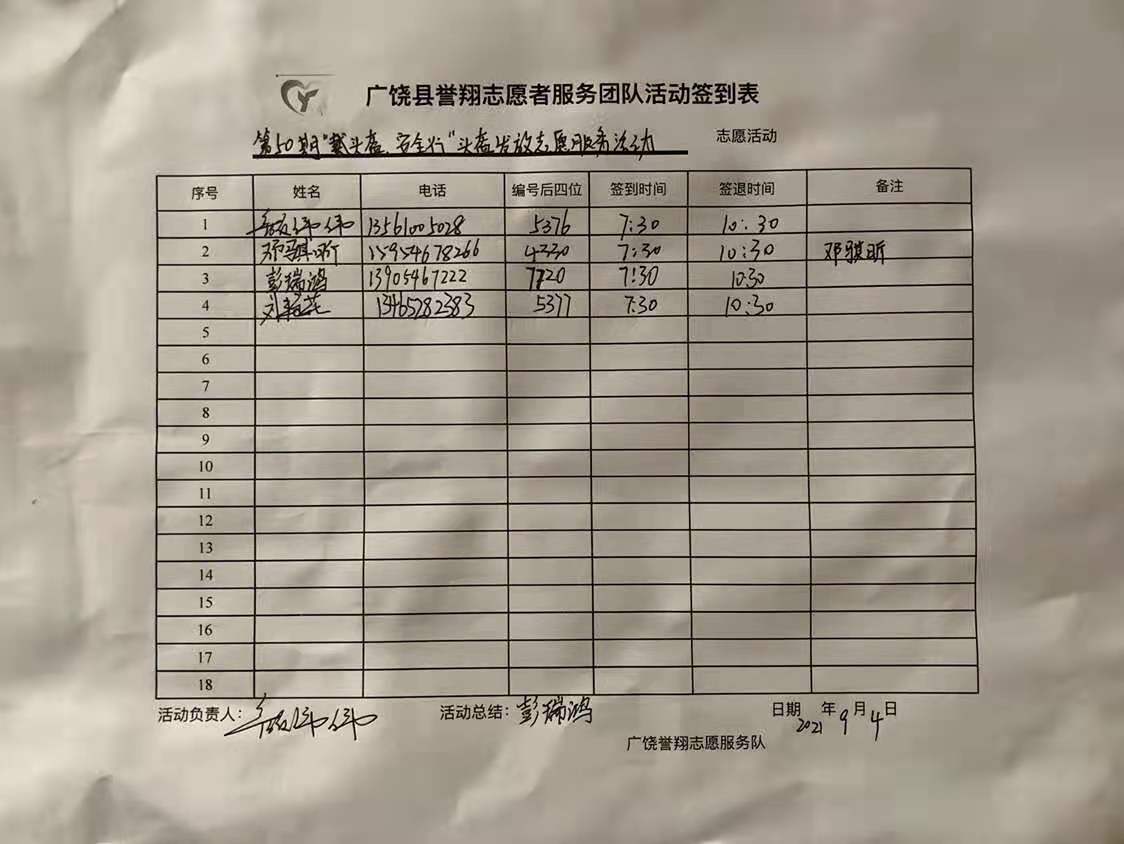 广饶县誉翔志愿者服务团队活动签到表
第50期"戴头盔、安全行"头盔发放志愿服务活动 志愿活动
序号 姓名 电话 编号后四位 签到时间 签退时间 备注
1 13561005028 5376 7:30 10:30
2 邓骐昕 15954678266 4330 7:30 10:30 邓骐昕
3 彭瑞鸿 13905467222 7720 7:30 10:30
4 13465282383 5377 7:30 10:30
5
6
7
8
9
10
11
12
13
14
15
16
17
18
活动负责人: 活动总结:彭瑞鸿 日期 2021年9月4日
广饶誉翔志愿服务队